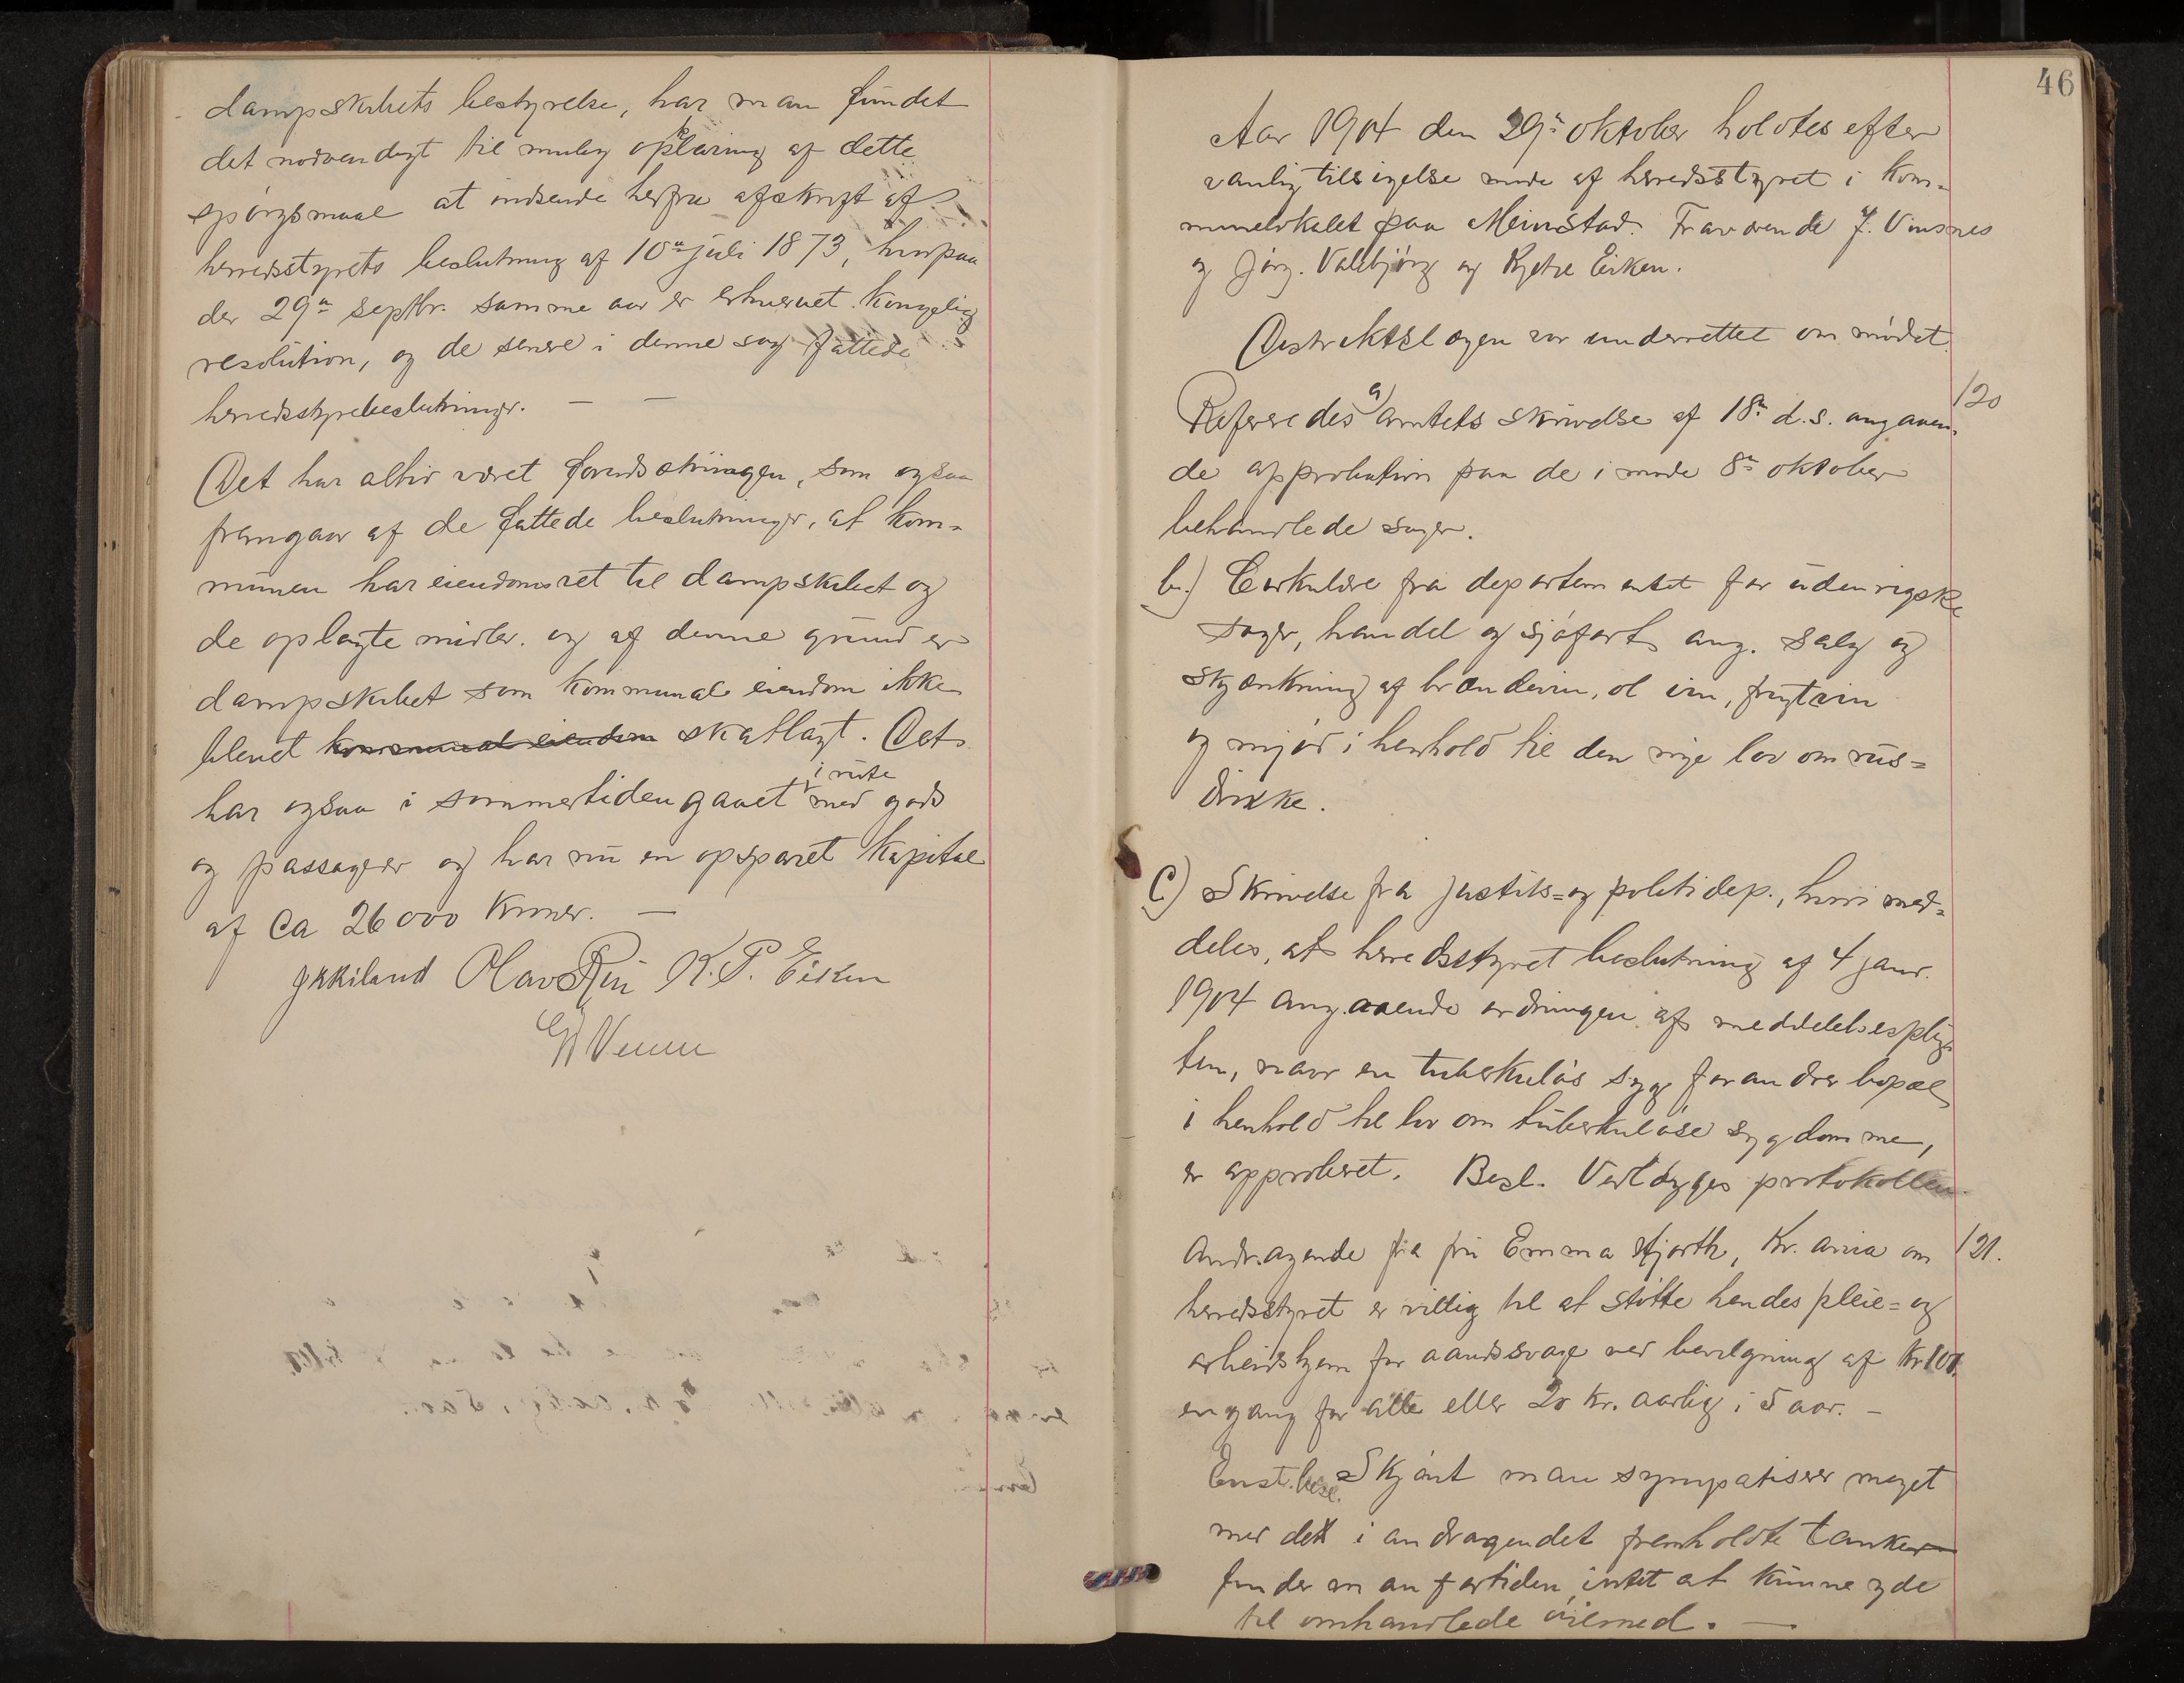 dampskibets bestyrelse, har man fundet
det nødvendigt til mulig opklaring af dette
spörgsmaal at indsende herfra afskrift af
herredsstyrets beslutning af 10de juli 1873, hvorpaa
der 29de septbr. samme aar er erhvervet kongelig
resolution, og de senere i denne sag fattede
herredsstyrebeslutninger. — —
Det har altid været forudsætningen, som ogsaa
fremgaar af de fattede beslutninger, at kom-
munen har eiendomsret til dampskibet og
de oplagte midler. og af denne grund er
dampskibet som kommunal eiendom ikke
blevet kommunal eiendom skatlagt. Det
har ogsaa i sommertiden gaaet i rute med gods
og passager og har nu en opsparet kapital
af Ca 26000 kroner. —
Olav K. P. Eiken
46
Aar 1904 den 29de oktober holdtes efter
vanlig tilsigelse møde af herredsstyret i kom-
munelokalet paa Meinstad. Fraværende J. Vinsnes
og Jörg. Valebjörg og Eiken.
Distriktslægen var underrettet om mödet.
120
Refereredes a) amtets skrivelse af 18de d.s. angaaen-
de approbation paa de i møde 8de oktober
behandlede sager.
b.) Cirkulære fra departementet for udenrigske
sager, handel og sjöfart ang. salg og
skjænkning af brændevin, øl vin, frugtvin
og mjød i henhold til den nye lov om rus-
drikke.
C) Skrivelse fra justits- og politidep., hvori med-
deles, at herredsstyret beslutning af 4 janr.
1904 angaaende ordningen af meddelelsesplig-
ten, naar en tuberkulös syg forandrer bopæl
i henhold til lov om tuberkulöse sygdomme,
er approberet. Besl. Vedlægges protokollen.
Andragende fra fru Emma Hjorth, Kr.ania om 121.
herredsstyret er villig til at stötte hendes pleie- og
arbeidshjem for aandssvage ved bevilgning af Kr 100
engang for alle eller 20 kr. aarlig i 5 aar. —
Enst. besl. Skjönt man sympatiserer meget
med det i andragendet fremholdte tanker
finder man fortiden intet at kunne yde
til omhandlede öiemed. —